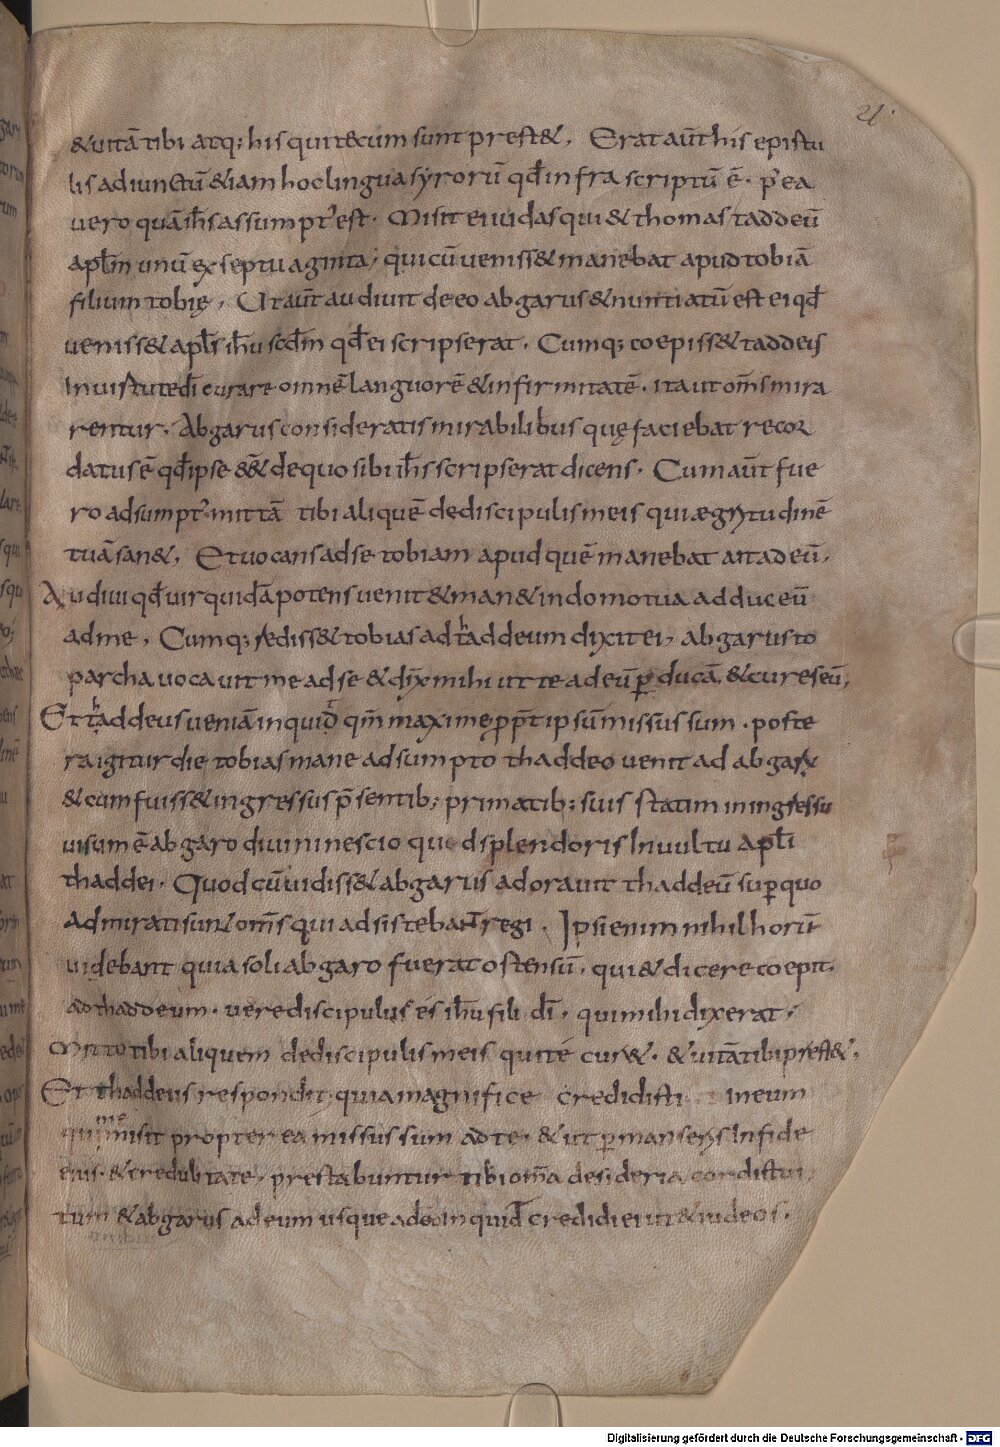 21
&uitā tibi atq; his qui tecum sunt prest&. Erat aūt his epistu
lis adiunctū &iam hoc lingua syrorū qđ infra scriptū ē. p' ea
vero quā ih̄s assumpt' est. Misit ei iudas qui & thomas taddeū
apl̄m unū ex septuaginta, qui cū ueniss& manebat apud tobiā
filium tobię, Ut aūt audiuit de eo abgarus & nuntiatū est ei qđ
ueniss& apl̄s ih̄u scdm̄ qđ ei scripserat. Cumq; coepiss& taddeis
In uirtute dī curare omnē languorē & infirmitatē. ita ut om̄s mira
rentur. Abgarus consideratis mirabilibus quę faciebat recor
datus ē qđ ipse ēē de quo sibi ih̄s scripserat dicens. Cum aūt fue
ro adsumpt' mittā tibi aliquē de discipulis meis qui ægrytudinē
tuā san&, Et uocans ad se tobiam apud quē manebat ait adeū.
Audiui qđ uir quidā potens uenit & man& in domo tua adduc eū
ad me, Cumq; rediss& tobias ad thaddeum dixit ei, abgarus to
parcha uocauit me ad se & dix̄ mihi ut te ad eū p̱ducā, & cures eū,
Et thaddeus ueniā inquid qm̄ maxime pp̄t ipsū missus sum. poste
ra igitur die tobias mane adsumpto thaddeo uenit ad abgarū
& cum fuiss& ingressus p̄sentib; primatib; suis statim in ingressu
uisum ē abgaro diuini nescio quid splendoris In uultu apl̄i
thaddei. Quod cū uidiss& abgarus adorauit thaddeū sup̱ quo
Admirati sunt om̄s qui adsistebant regi. Ipsi enim nihil horū
uidebant quia soli abgaro fuerat ostensū, qui & dicere coepit.
ad thaddeum. uere discipulus és ih̄u fili dī. qui mihi dixerat,
Mitto tibi aliquem de discipulis meis qui té cur&. & uitā tibi prest&.
Et thaddeus respondit, quia magnifice credidisti in eum
qui me misit propter ea missus sum ad te. & ut p̱manserys In fide
eius. & credulitate, prestabuntur tibi om̄a desideria cordis tui,
tum & abgarus ad eum usque adeo inquid credidi ei ut & iudeos.
Digitalisierung gefördert durch die Deutsche Forschungsgemeinschaft - DFG